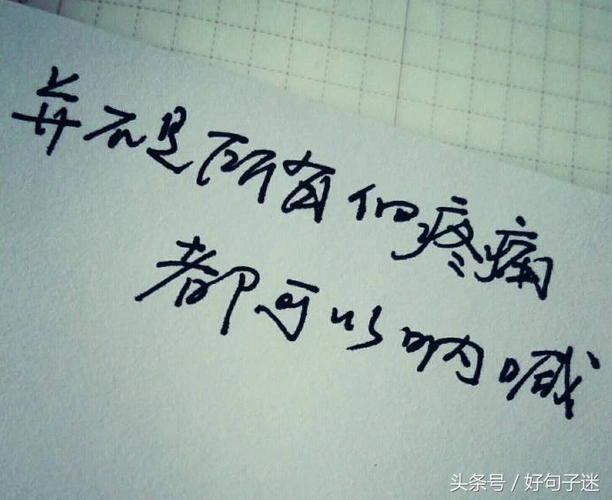 并不是所有的疼痛
都可以呐喊
头条号 / 好句子迷